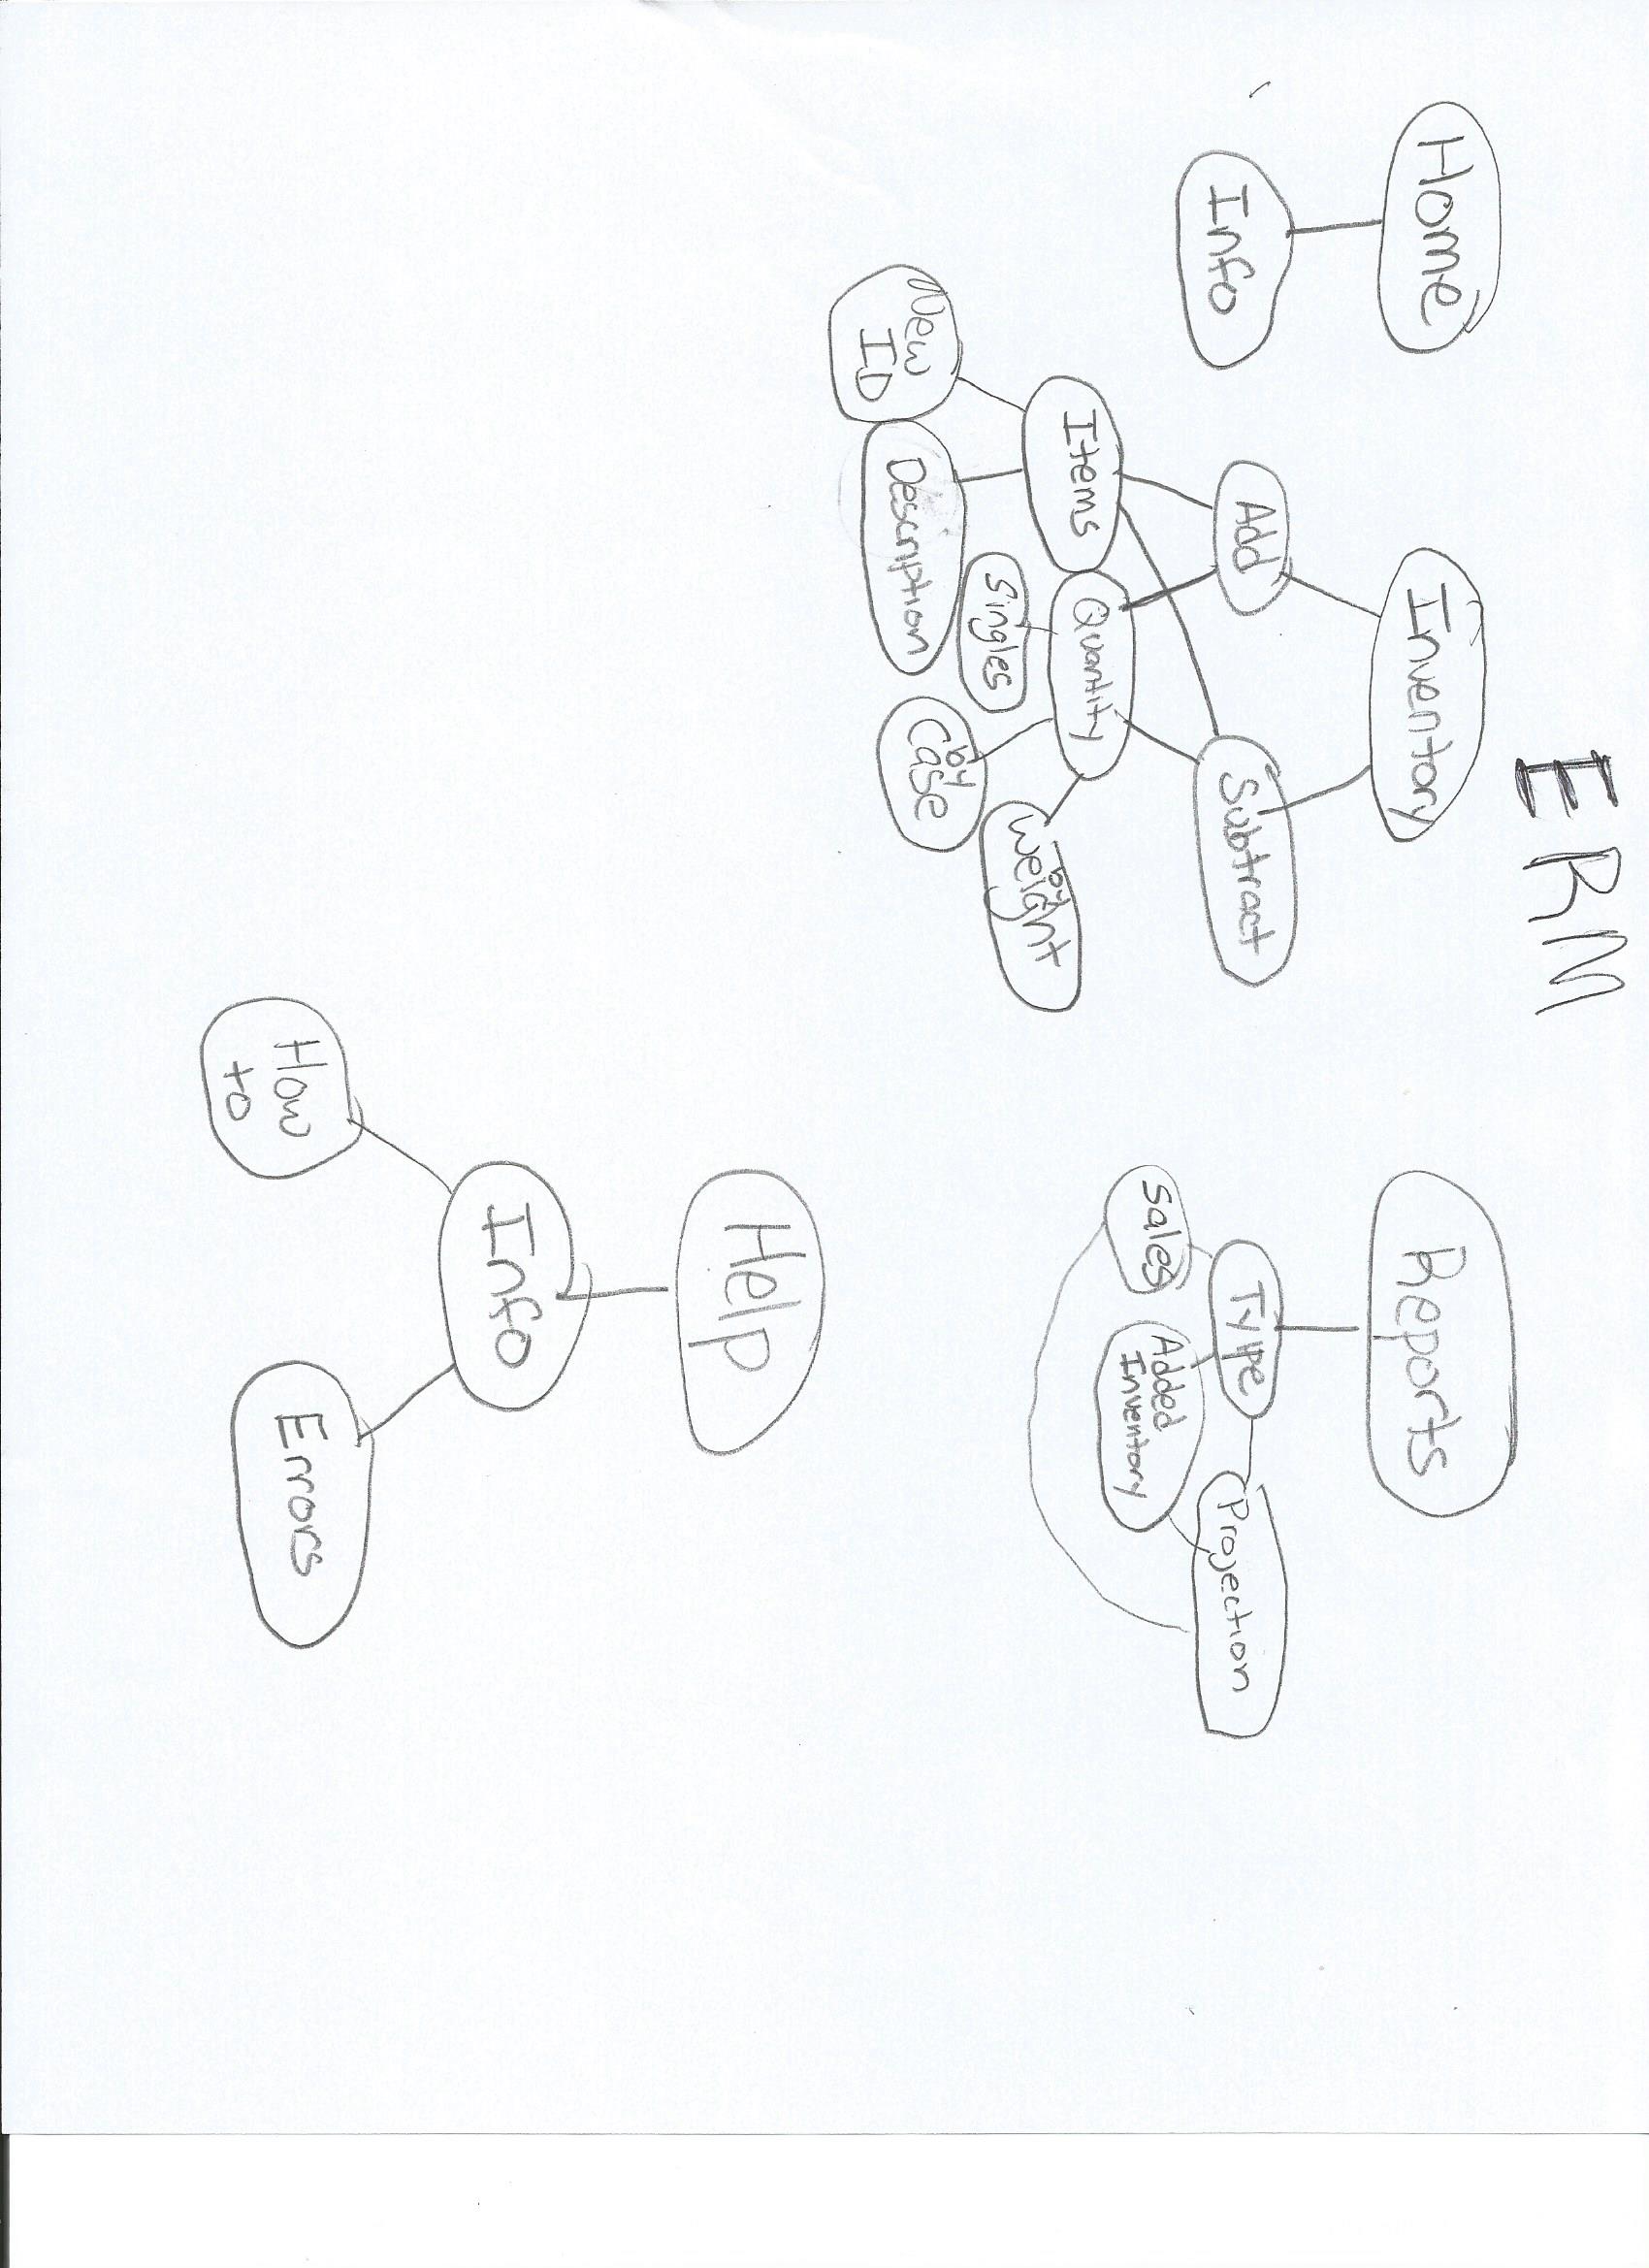 ERM
Home
Info
Inventory
Add
Subtract
Items
Quantity
New
ID
Description
Singles
by
Case
by
Weight
Reports
Type
Sales
Added
Inventory
Projection
Help
Info
How
to
Errors